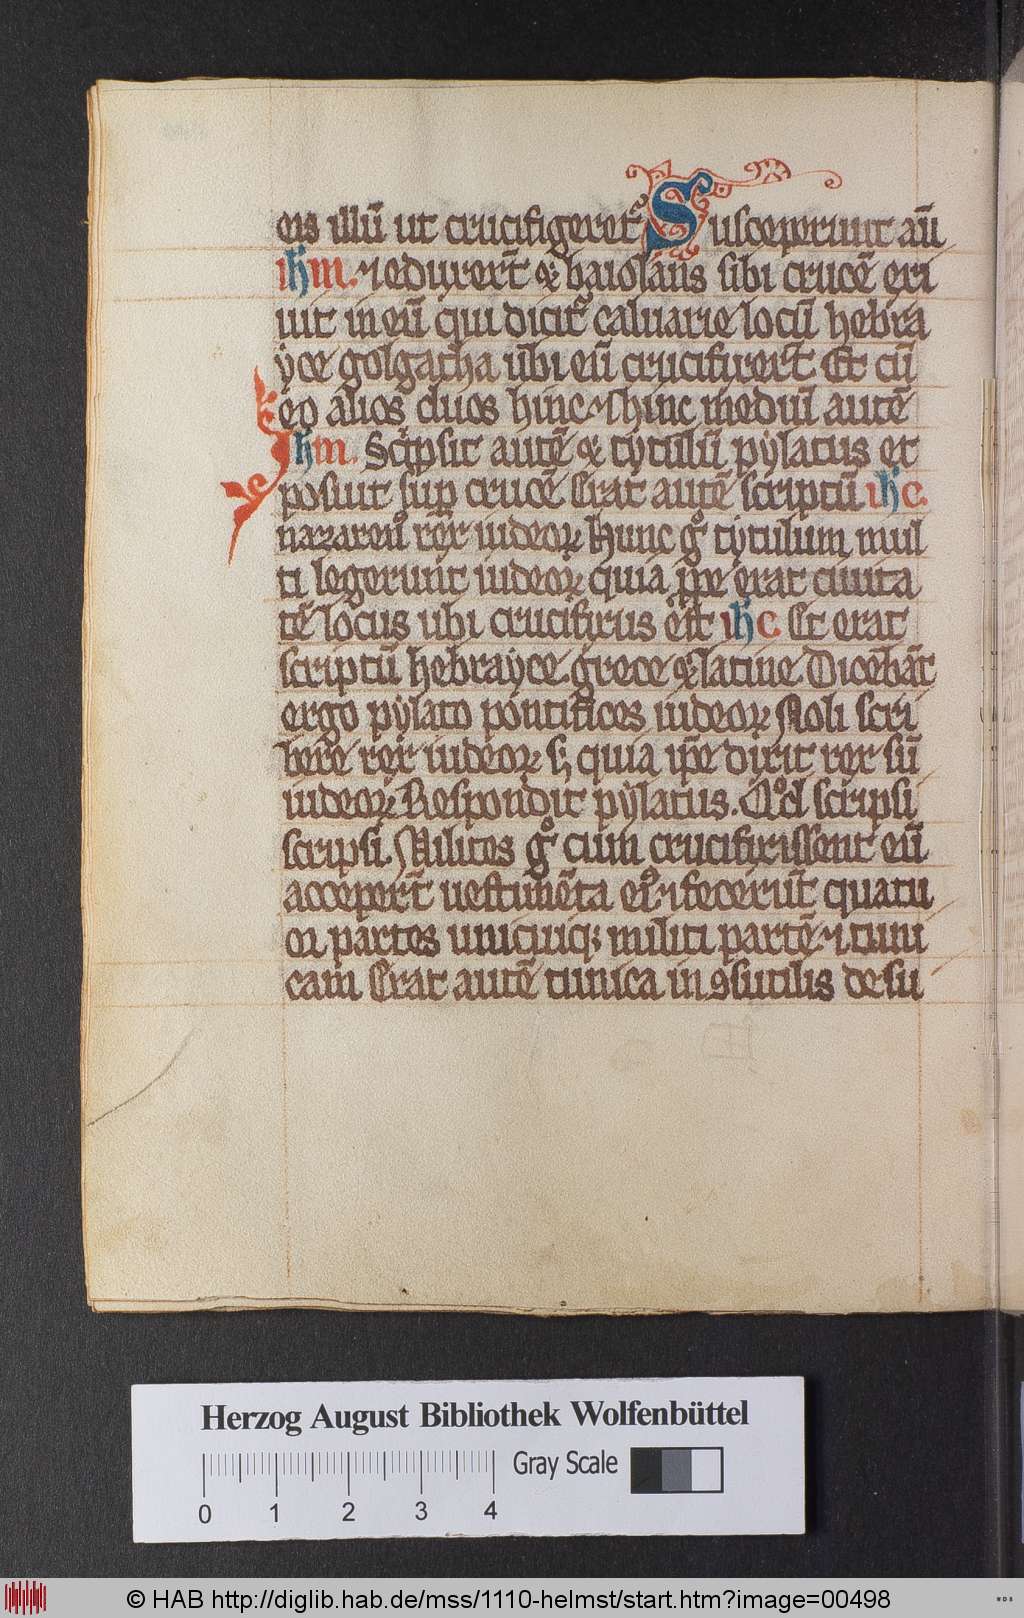 eis illū ut crucifigeret᷑ Susceperunt aū
ihm. ⁊ eduxert̄ & baiolans sibi crucē exi
uit in eū qui dicit᷑ caluarie locū hebra
yce golgatha ubi eū crucifixert̄ Et cū
eo alios duos hinc ⁊ hinc mediū autē
Ihm. Sc͛psit autē & tytulū pylatus et
posuit sup̄ crucē Erat autē scriptū ihc.
nazarenꝰ rex iudeoꝝ Hunc gͦ tytulum mul
ti legerunt iudeoꝝ quia ꝓpe erat ciuita
tē locus ubi crucifixus est ihc. Et erat
scriptū hebrayce grece & latine Dicebāt
ergo pylato pontifices iudeoꝝ Noli scri
bere rex iudeoꝝ sꝫ quia ip̄e dixit rex sū
iudeoꝝ Respondit pylatus. Qͦd scripsi
scripsi. Milites gͦ cum crucifixissent eū
accepert̄ uestimēta eiꝰ ⁊ fecerūt quatu
or partes unicuiqꝫ militi partē ⁊ tuni
cam Erat autē tunica inꝯsutilis desu
Herzog August Bibliothek Wolfenbüttel
Gray Scale
0 1 2 3 4
© HAB http://diglib.hab.de/mss/1110-helmst/start.htm?image=00498